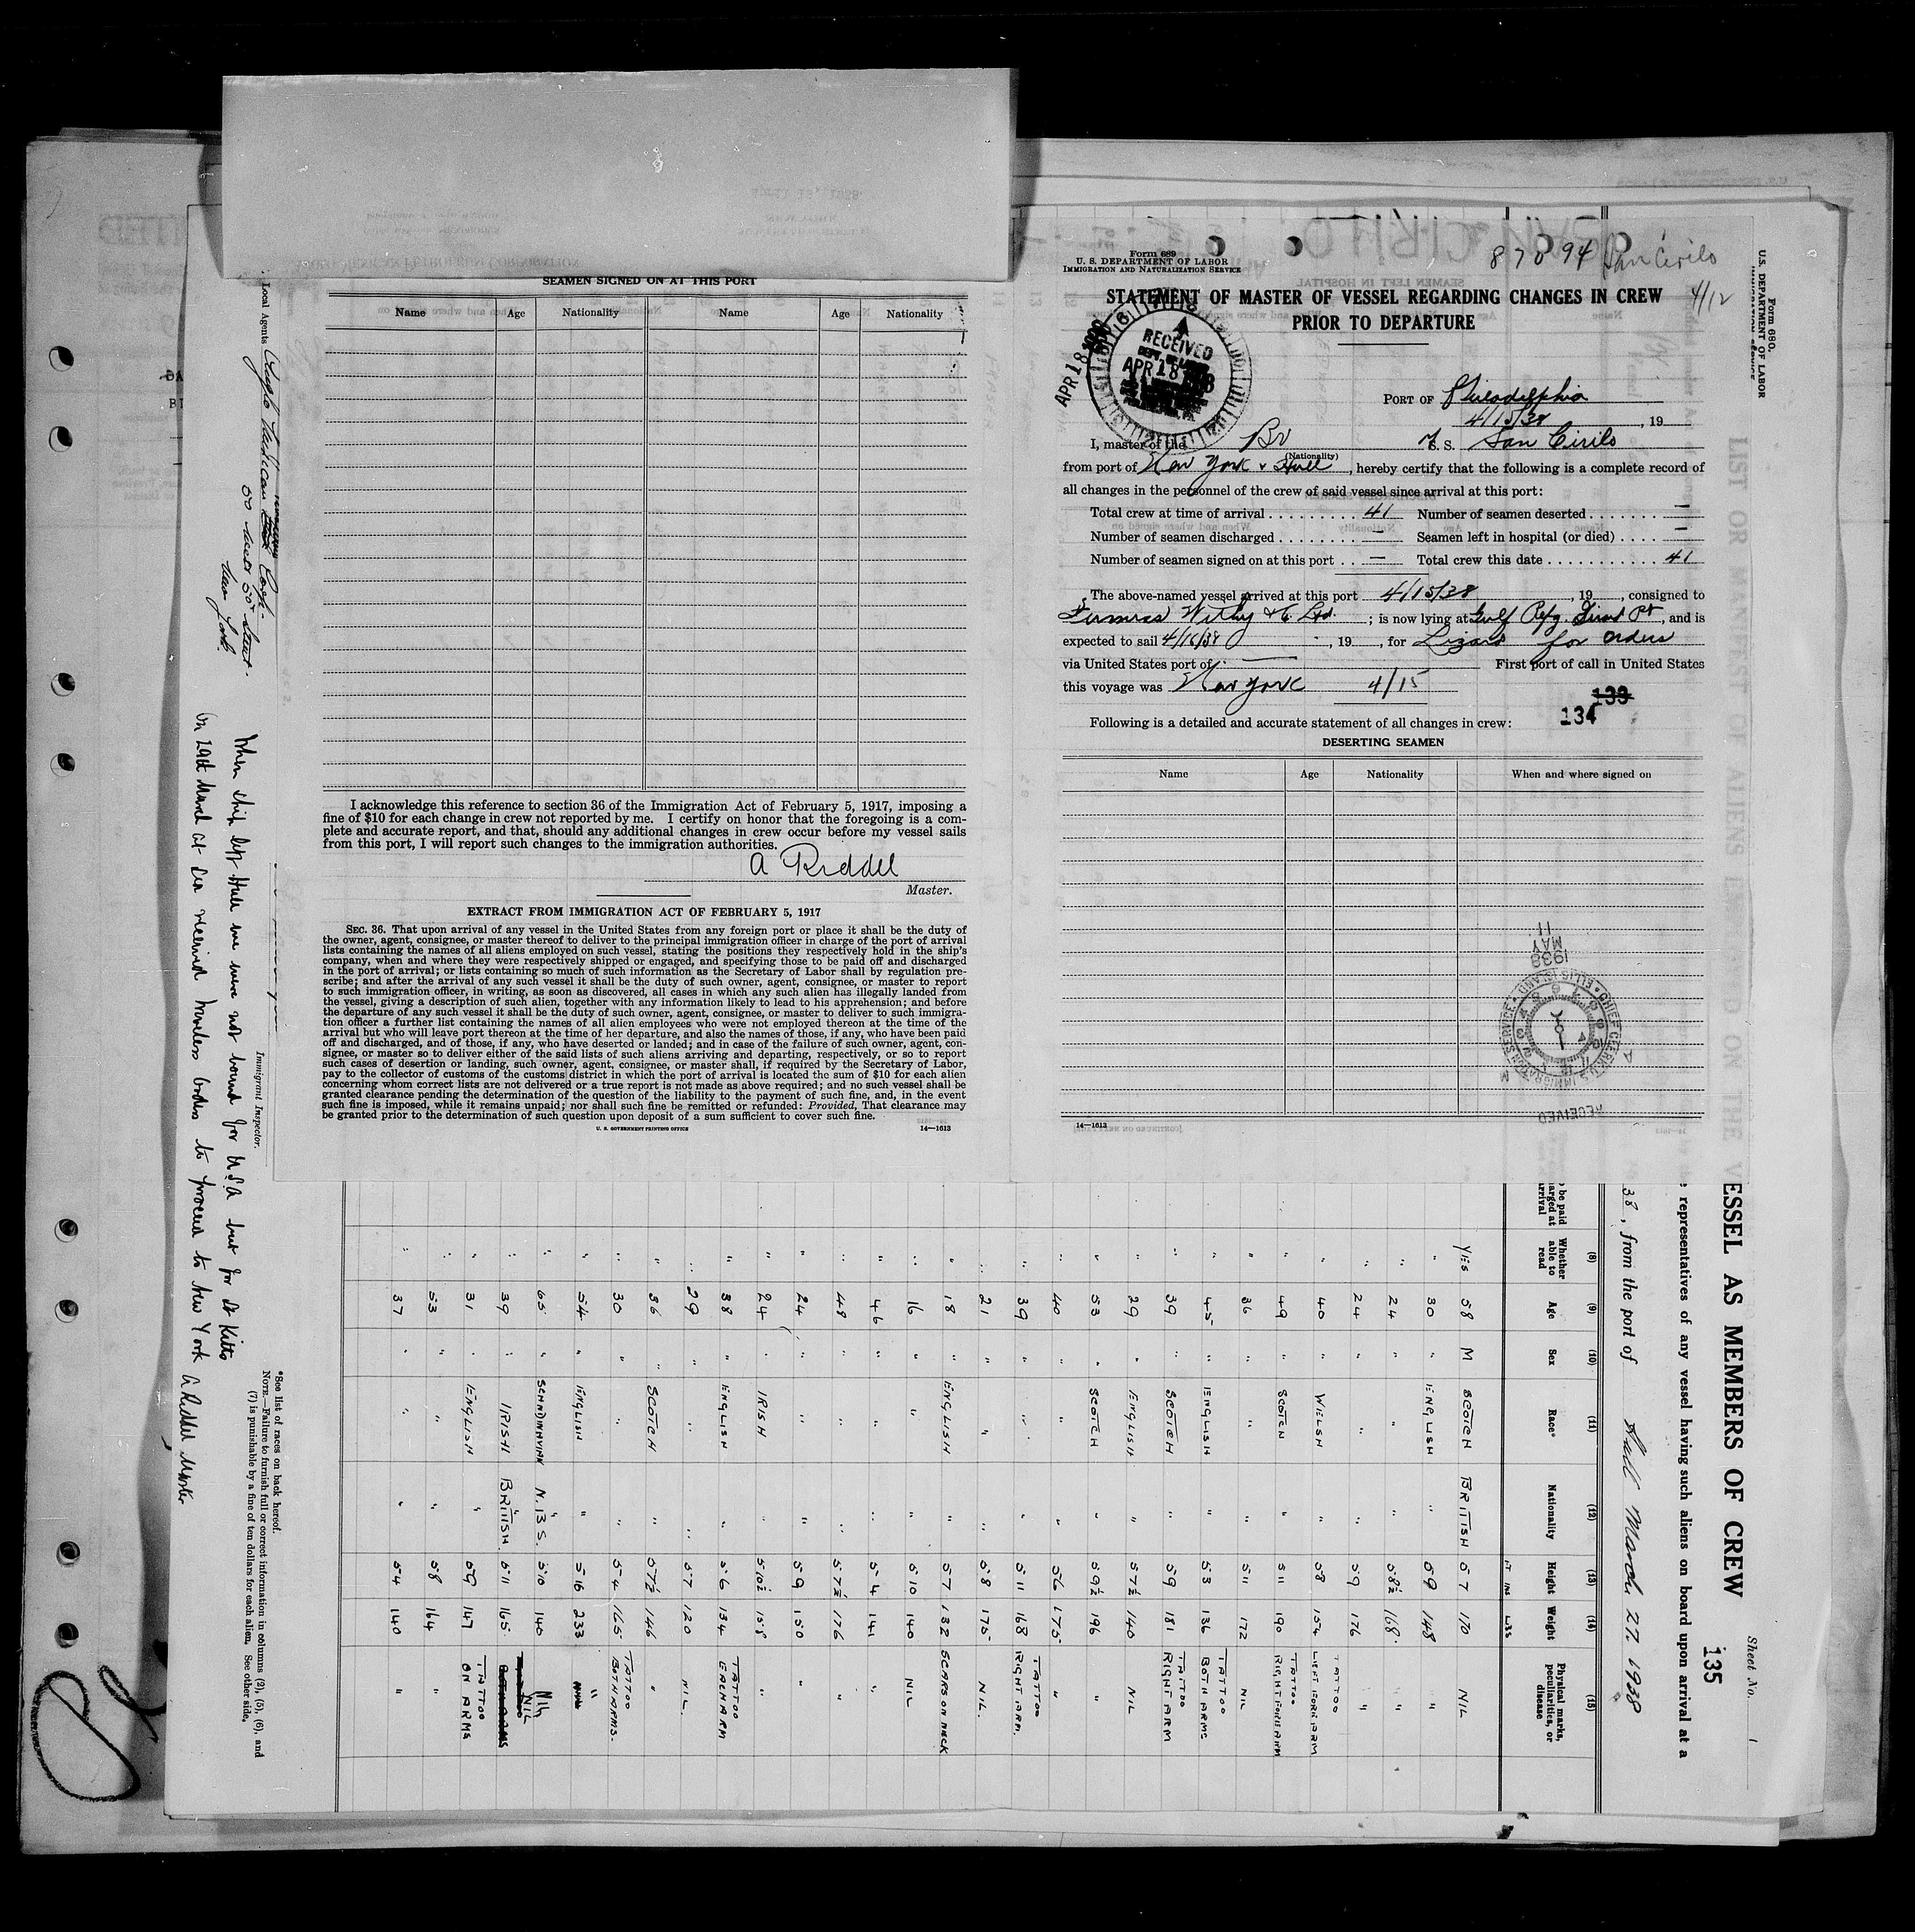 SEAMEN SIGNED ON AT THIS PORT
Name Age Nationality Name Age Nationality
I acknowledge this reference to section 36 of the Immigration Act of February 5, 1917, imposing a
fine of $10 for each change in crew not reported by me. I certify on honor that the foregoing is a com-
plete and accurate report, and that, should any additional changes in crew occur before my vessel sails
from this port, I will report such changes to the immigration authorities.
A Riddel
Master.
EXTRACT FROM IMMIGRATION ACT OF FEBRUARY 5, 1917
SEC. 36. That upon arrival of any vessel in the United States from any foreign port or place it shall be the duty of
the owner, agent, consignee, or master thereof to deliver to the principal immigration officer in charge of the port of arrival
lists containing the names of all aliens employed on such vessel, stating the positions they respectively hold in the ship's
company, when and where they were respectively shipped or engaged, and specifying those to be paid off and discharged
in the port of arrival; or lists containing so much of such information as the Secretary of Labor shall by regulation pre-
scribe; and after the arrival of any such vessel it shall be the duty of such owner, agent, consignee, or master to report
to such immigration officer, in writing, as soon as discovered, all cases in which any such alien has illegally landed from
the vessel, giving a description of such alien, together with any information likely to lead to his apprehension; and before
the departure of any such vessel it shall be the duty of such owner, agent, consignee, or master to deliver to such immigra-
tion officer a further list containing the names of all alien employees who were not employed thereon at the time of the
arrival but who will leave port thereon at the time of her departure, and also the names of those, if any, who have been paid
off and discharged, and of those, if any, who have deserted or landed; and in case of the failure of such owner, agent, con-
signee, or master so to deliver either of the said lists of such aliens arriving and departing, respectively, or so to report
such cases of desertion or landing, such owner, agent, consignee, or master shall, if required by the Secretary of Labor,
pay to the collector of customs of the customs district in which the port of arrival is located the sum of $10 for each alien
concerning whom correct lists are not delivered or a true report is not made as above required; and no such vessel shall be
granted clearance pending the determination of the question of the liability to the payment of such fine, and, in the event
such fine is imposed, while it remains unpaid; nor shall such fine be remitted or refunded: Provided, That clearance may
be granted prior to the determination of such question upon deposit of a sum sufficient to cover such fine.
U. S. GOVERNMENT PRINTING OFFICE 14—1613
Form 689
U. S. DEPARTMENT OF LABOR
IMMIGRATION AND NATURALIZATION SERVICE
87094 San Cirilo
4/12
STATEMENT OF MASTER OF VESSEL REGARDING CHANGES IN CREW
PRIOR TO DEPARTURE
RECEIVED
APR 18
PORT OF Philadelphia
4/15/38, 19
I, master of the Br S. S. San Cirilo
(Nationality)
from port of New York & Hull, hereby certify that the following is a complete record of
all changes in the personnel of the crew of said vessel since arrival at this port:
Total crew at time of arrival 41 Number of seamen deserted —
Number of seamen discharged — Seamen left in hospital (or died) —
Number of seamen signed on at this port — Total crew this date 41
The above-named vessel arrived at this port 4/15/38, 19, consigned to
Furness Withy & Co. Ltd.; is now lying at Gulf Refg. Girard Pt, and is
expected to sail 4/16/38, 19, for Lizard for orders
via United States port of — First port of call in United States
this voyage was New York 4/15
133
134
Following is a detailed and accurate statement of all changes in crew:
DESERTING SEAMEN
Name Age Nationality When and where signed on
1938
MAY
11
CHIEF CLERK U S IMMIGRATION SERVICE ELLIS ISLAND
RECEIVED
14—1613
Form 680.
U.S. DEPARTMENT OF LABOR
Sheet No. 1
135
VESSEL AS MEMBERS OF CREW
representatives of any vessel having such aliens on board upon arrival at a
38, from the port of Hull March 27 1938
(8) (9) (10) (11) (12) (13) (14) (15)
Whether able to read Age Sex Race* Nationality Height Weight Physical marks, peculiarities, or disease
YES 58 M SCOTCH BRITISH 5 7 170 NIL
" 30 " ENGLISH " 5 9 148 "
" 24 " " " 5 8½ 168 "
" 24 " " " 5 9 176 "
" 40 " WELSH " 5 8 154 TATTOO LEFT FORE ARM
" 49 " SCOTCH " 5 11 190 TATTOO RIGHT FORE ARM
" 36 " " " 5 11 172 NIL
" 45 " ENGLISH " 5 3 136 TATTOO BOTH ARMS
" 39 " SCOTCH " 5 9 181 TATTOO RIGHT ARM
" 29 " ENGLISH " 5 7½ 140 NIL
" 53 " SCOTCH " 5 9½ 196 "
" 40 " " " 5 6 175 "
" 39 " " " 5 11 168 TATTOO RIGHT ARM.
" 21 " " " 5 8 175 NIL.
" 18 " ENGLISH " 5 7 132 SCARS ON NECK
" 16 " " " 5 10 140 NIL
" 46 " " " 5 4 141 "
" 48 " " " 5 7½ 176 "
" 24 " " " 5 9 150
" 24 " IRISH " 5 10½ 158 "
" 38 " ENGLISH " 5 6 134 TATTOO EACH ARM
" 29 " " " 5 7 120 NIL.
" 36 " SCOTCH " 5 7½ 146 "
" 30 " " " 5 4 165 TATTOO BOTH ARMS.
" 54 " ENGLISH " 5 10 233 "
" 65 " SCANDINAVIAN N.B.S. 5 10 140 Nil
" 39 " IRISH BRITISH 5 11 165 NIL
" 31 " ENGLISH " 5 9 147 TATTOO ON ARMS
" 53 " " " 5 8 164 "
" 37 " " " 5 4 140 "
Local Agents Anglo Mexican Petroleum Corp.
50 West 50th Street.
New York
Immigrant Inspector.
*See list of races on back hereof.
NOTE.—Failure to furnish full or correct information in columns (2), (5), (6), and
(7) is punishable by a fine of ten dollars for each alien. See other side.
When ship left Hull we were not bound for U.S.A. but for St Kitts
On 29th March at sea received wireless orders to proceed to New York A Riddel Master